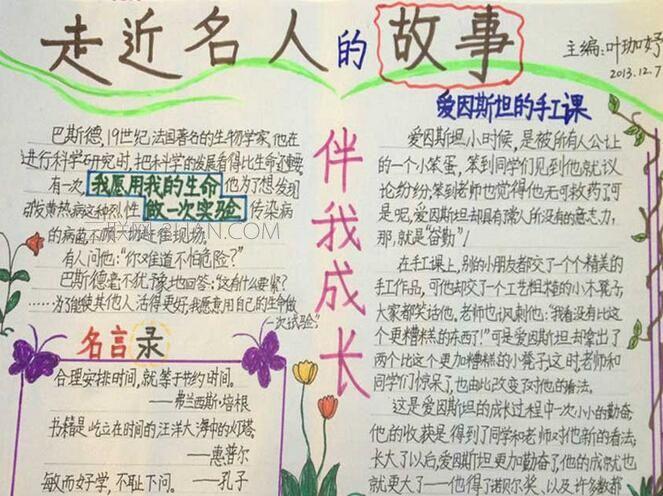 走近名人的故事
主编:叶珈妤
2013.12.7
巴斯德,19世纪法国著名的生物学家,他在
进行科学研究时,把科学的发展看得比生命还重要。
有一次,我愿用我的生命他为了想发现
黄热病这种烈性做一次实验传染病
的病菌不顾一切赶往现场。
有人问他:“你难道不怕危险?”
巴斯德毫不犹豫地回答:“这有什么要紧?
……为了能使其他人活得更好,我愿意用自己的生命做
一次试验。”
名言录
合理安排时间,就等于节约时间。
——弗兰西斯·培根
书籍是屹立在时间的汪洋大海中的灯塔。
——惠普尔
敏而好学,不耻下问。
——孔子
伴我成长
爱因斯坦的手工课
爱因斯坦小时候,是被所有人公认
的一个小笨蛋,笨到同学们见到他就议
论纷纷,笨到老师也觉得他无可救药了,可
是呢,爱因斯坦却具有常人所没有的意志力,
那,就是“奋勤”!
在手工课上,别的小朋友都交了一个个精美的
手工作品,可他却交了一个工艺粗糙的小木凳子,
大家都笑话他。老师也讽刺他:“我看没有比这
个更糟糕的东西了!”可是爱因斯坦却拿出了
两个比这个更加糟糕的小凳子,这时,老师和
同学们惊呆了,也由此改变了对他的看法。
这是爱因斯坦的成长过程中一次小小的勤奋
他的收获是得到了同学和老师对他新的看法;
长大了以后,爱因斯坦更加勤奋了,他的成就也
就更大了——他得了诺贝尔奖,以及许多数都